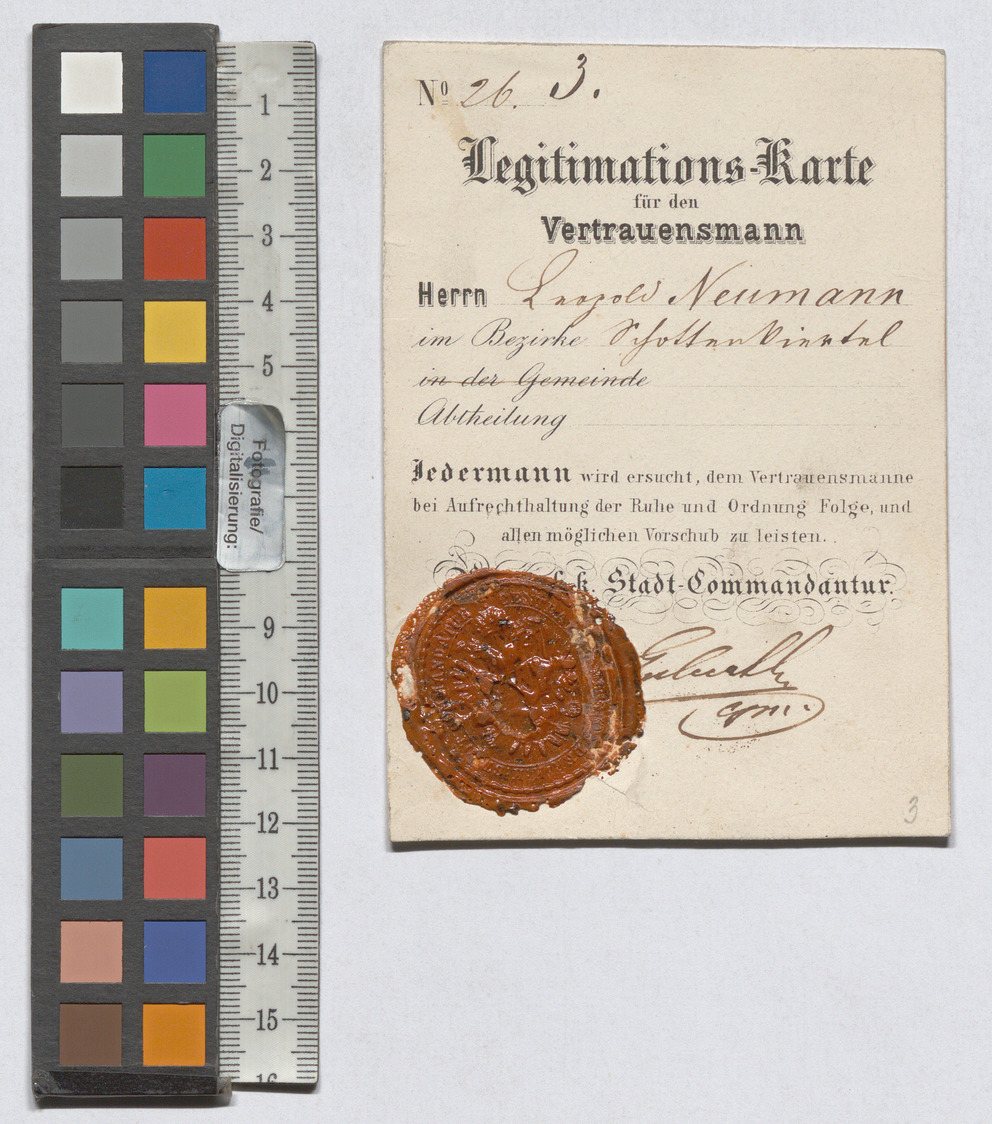 1
2
3
4
5
Fotografie/
Digitalisierung:
9
10
11
12
13
14
15
16
Nº 26. 3.
Legitimations-Karte
für den
Vertrauensmann
Herrn Leopold Neumann
im Bezirke Schottenviertel
in der Gemeinde
Abtheilung
Jedermann wird ersucht, dem Vertrauensmanne
bei Aufrechthaltung der Ruhe und Ordnung Folge, und
allen möglichen Vorschub zu leisten.
k. Stadt-Commandantur.
3